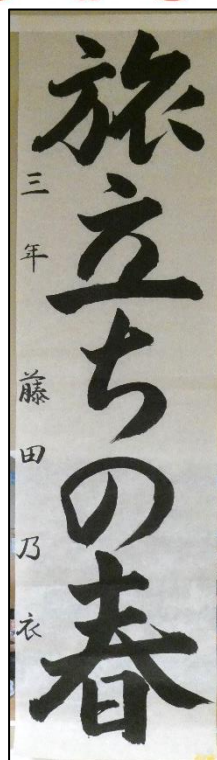 旅立ちの春
三年 藤田乃衣